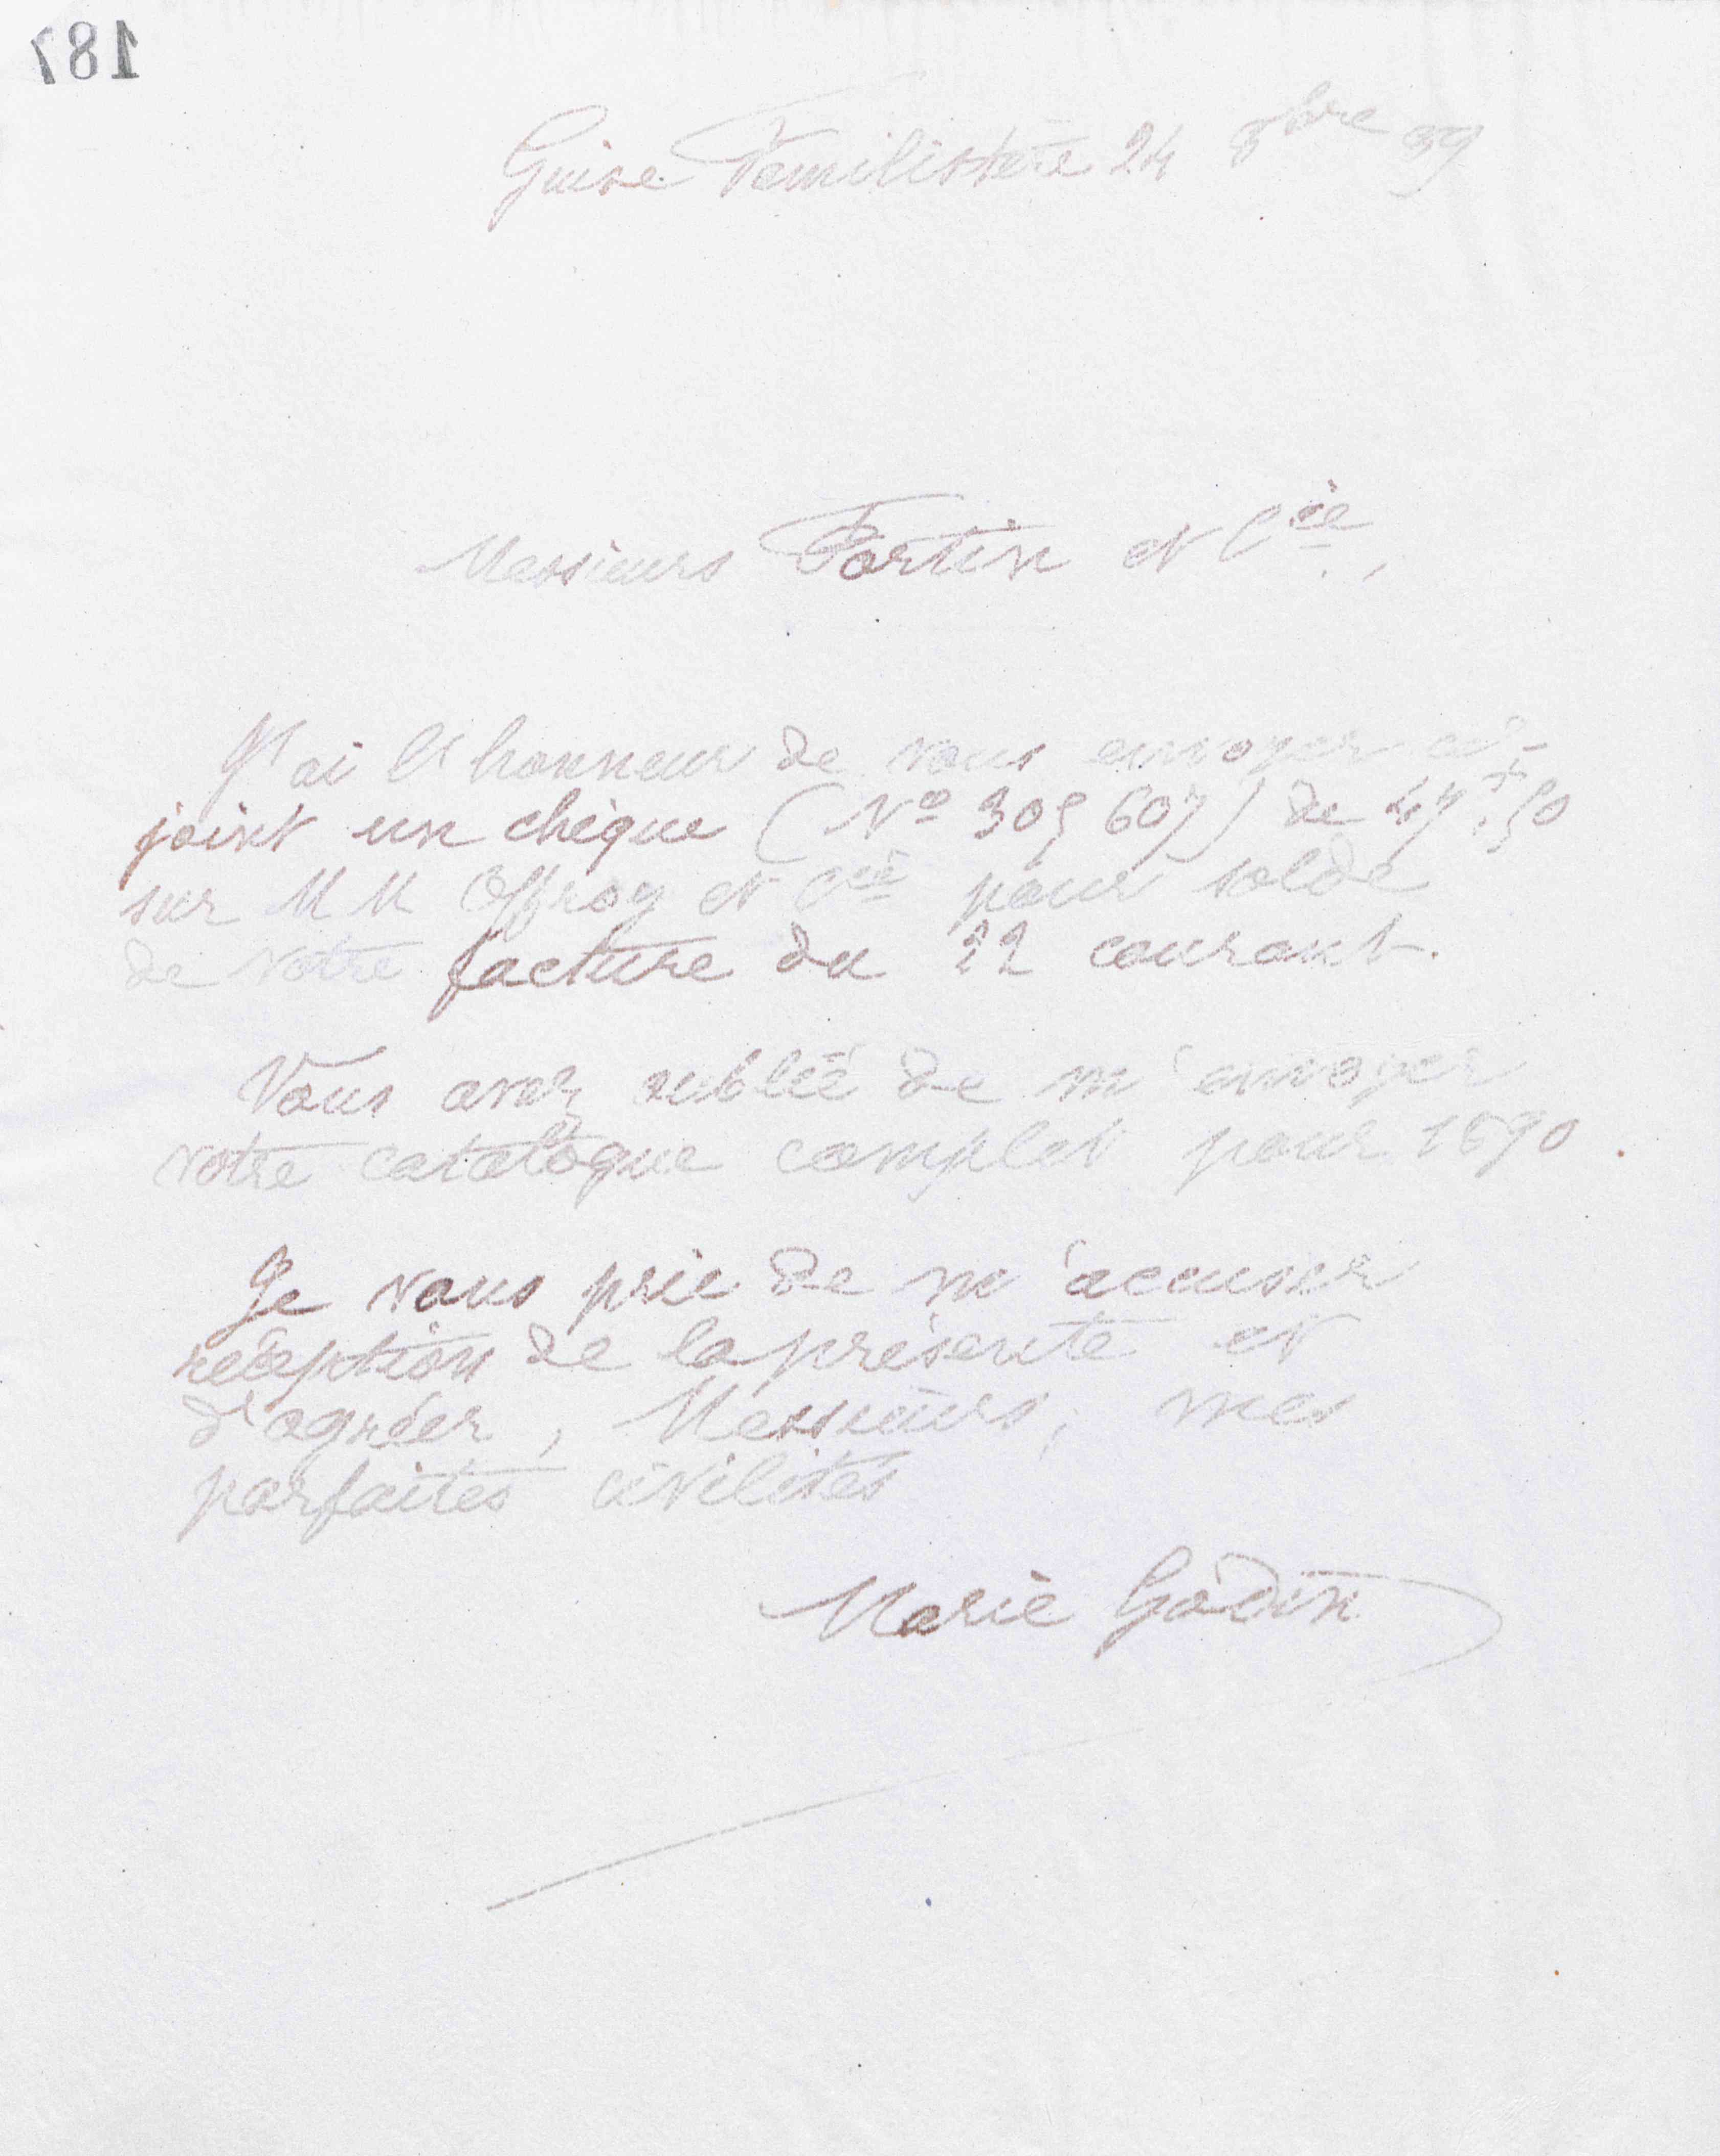 187
Guise Familistère 24 8bre 89
Messieurs Fortin et Cie,
J'ai l'honneur de vous envoyer ci-
joint un chèque (No 305607) de 47f.50
sur MM Offroy et Cie pour solde
de votre facture du 22 courant.
Vous avez oublié de m'envoyer
votre catalogue complet pour 1890.
Je vous prie de m'accuser
réception de la présente et
d'agréer, Messieurs, mes
parfaites civilités
Marie Godin